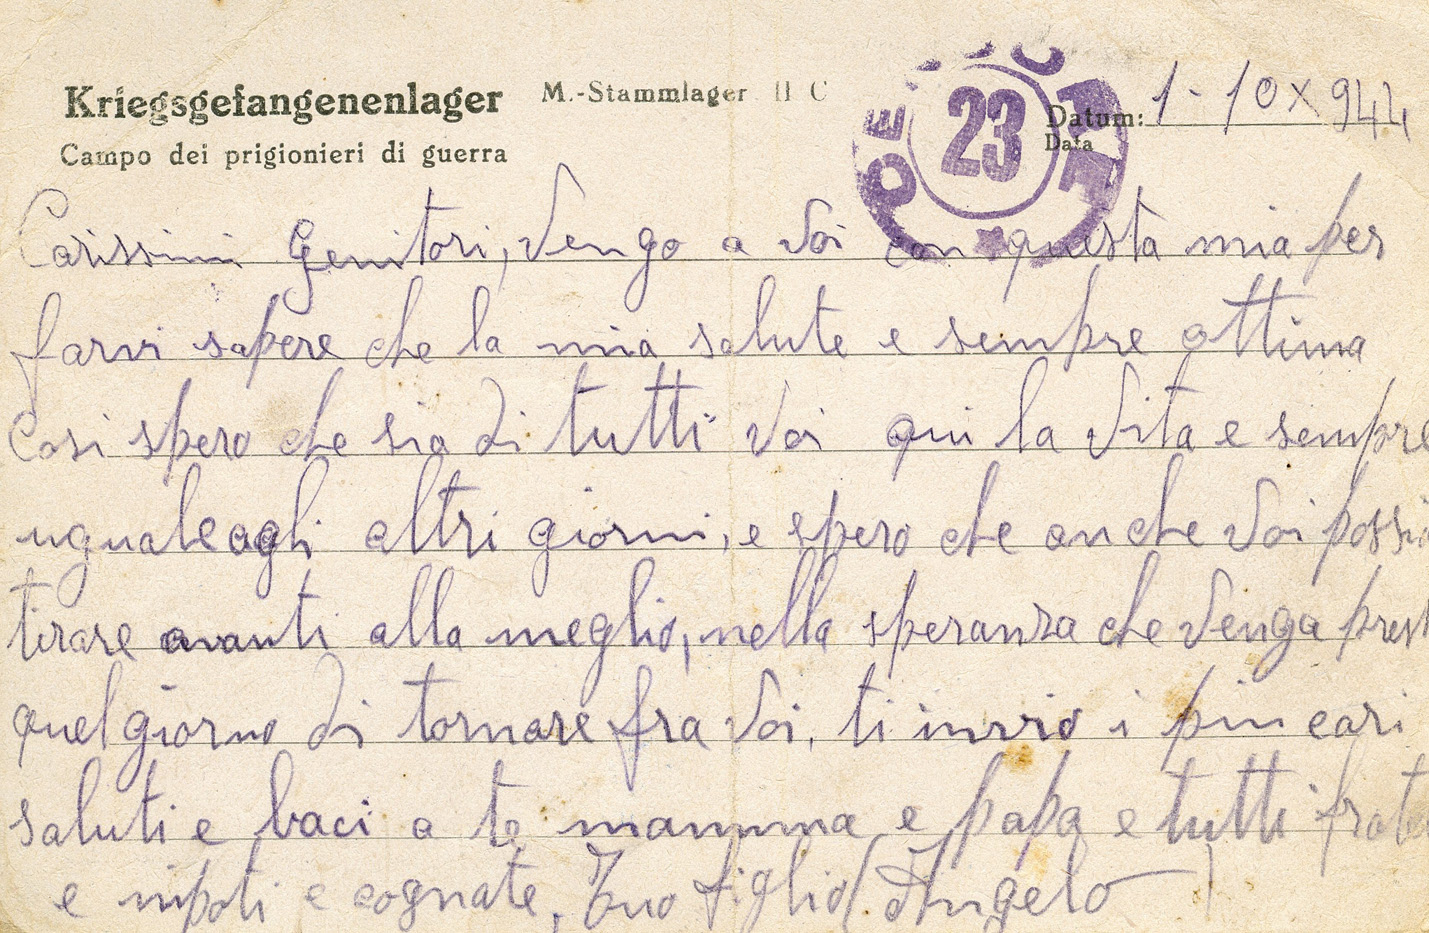 Kriegsgefangenenlager M.-Stammlager II C Datum: 1-10X944
Campo dei prigionieri di guerra Data
23
Carissimi Genitori, Vengo a Voi con questa mia per
farvi sapere che la mia salute e sempre ottima
Cosi spero che sia di tutti Voi qui la Vita e sempre
uguale agli altri giorni, e spero che anche Voi possi
tirare avanti alla meglio, nella speranza che Venga prest
quel giorno di tornare fra Voi, ti invio i piu cari
saluti e baci a te mammma e papa e tutti frate
e nipoti e cognate, Tuo figlio (Angelo)